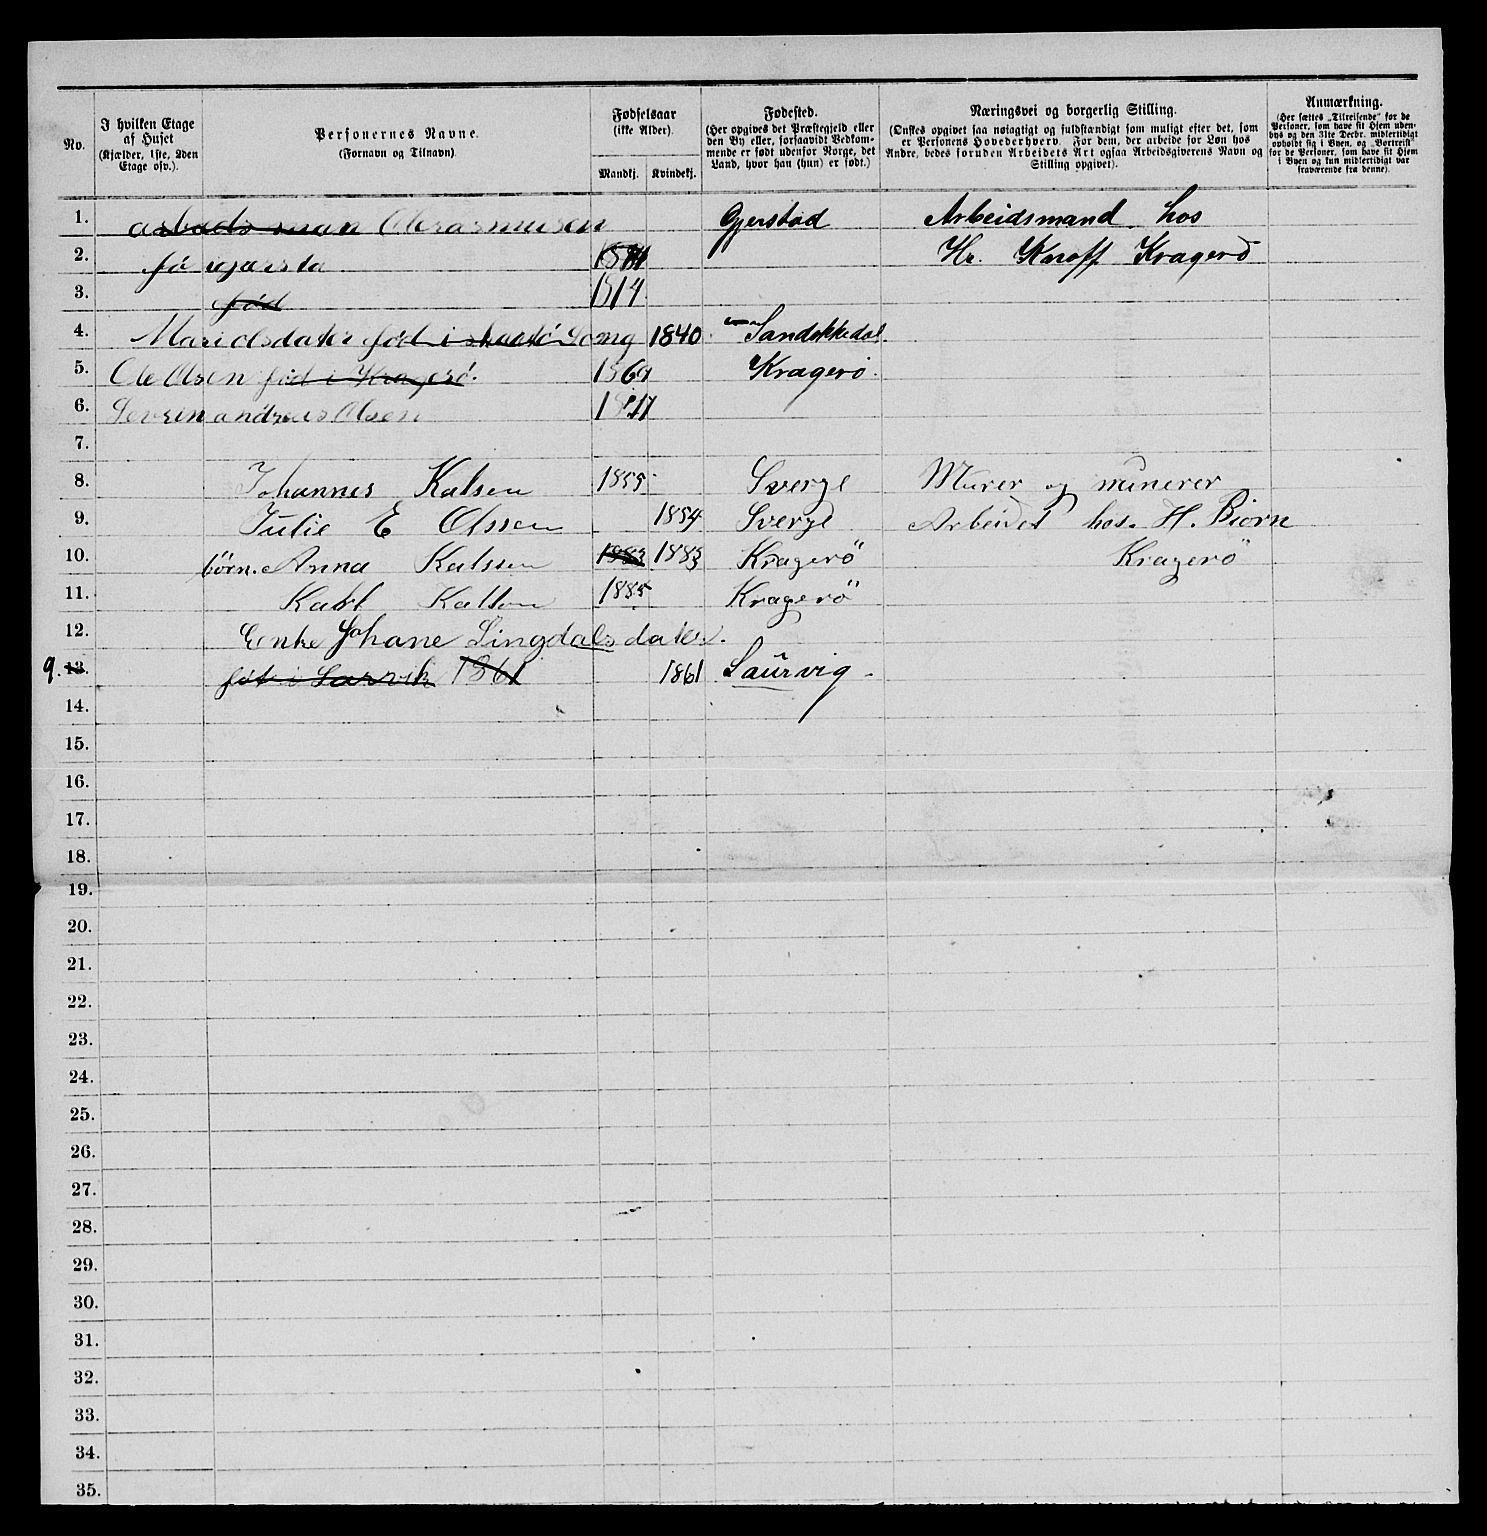 No.
I hvilken Etage af Huset (Kjælder, 1ste, 2den Etage osv.).
Personernes Navne. (Fornavn og Tilnavn)
Fødselsaar (ikke Alder).
Mandkj. Kvindekj.
Fødested. (Her opgives det Præstegjeld eller den By eller, forsaavidt Vedkommende er født udenfor Norge, det Land, hvor han (hun) er født.)
Næringsvei og borgerlig Stilling. (Ønskes opgivet saa nøiagtigt og fuldstændigt som muligt efter det, som er Personens Hovederhverv. For dem, der arbeide for Løn hos Andre, bedes foruden Arbeidets Art ogsaa Arbeidsgiverens Navn og Stilling opgivet).
Anmærkning. (Her sættes „Tilreisende" for de Personer, som have sit Hjem udenbys og den 31te Decbr. midlertidigt opholdt sig i Byen, og „Bortreist" for de Personer, som have sit Hjem i Byen og kun midlertidigt var fraværende fra denne).
1. arbeds man Olerasmusen Gjerstad Arbeidsmand hos
2. fö Hr. Knoff Kragerö
3. föd 1814
4. Mari olsdater föd i 1840 Sandökedal
5. Ole Olsen föd i Kragerö. Kragerö.
6. Severin andreas Olsen
7.
8. Johannes Kalsen 1855 Sverge Murer og minerer
9. Julie E Olssen 1854 Sverge Arbeidet hos. H. Biörn
10. börn. Anna Kalssen 1883 1883 Kragerö Kragerö
11. Karl Kalson 1885 Kragerö
12. Enke Johane Lingdalsdater.
9. 13. föt i Larvik 1861 1861 Laurvig.
14.
15.
16.
17.
18.
19.
20.
21.
22.
23.
24.
25.
26.
27.
28.
29.
30.
31.
32.
33.
34.
35.